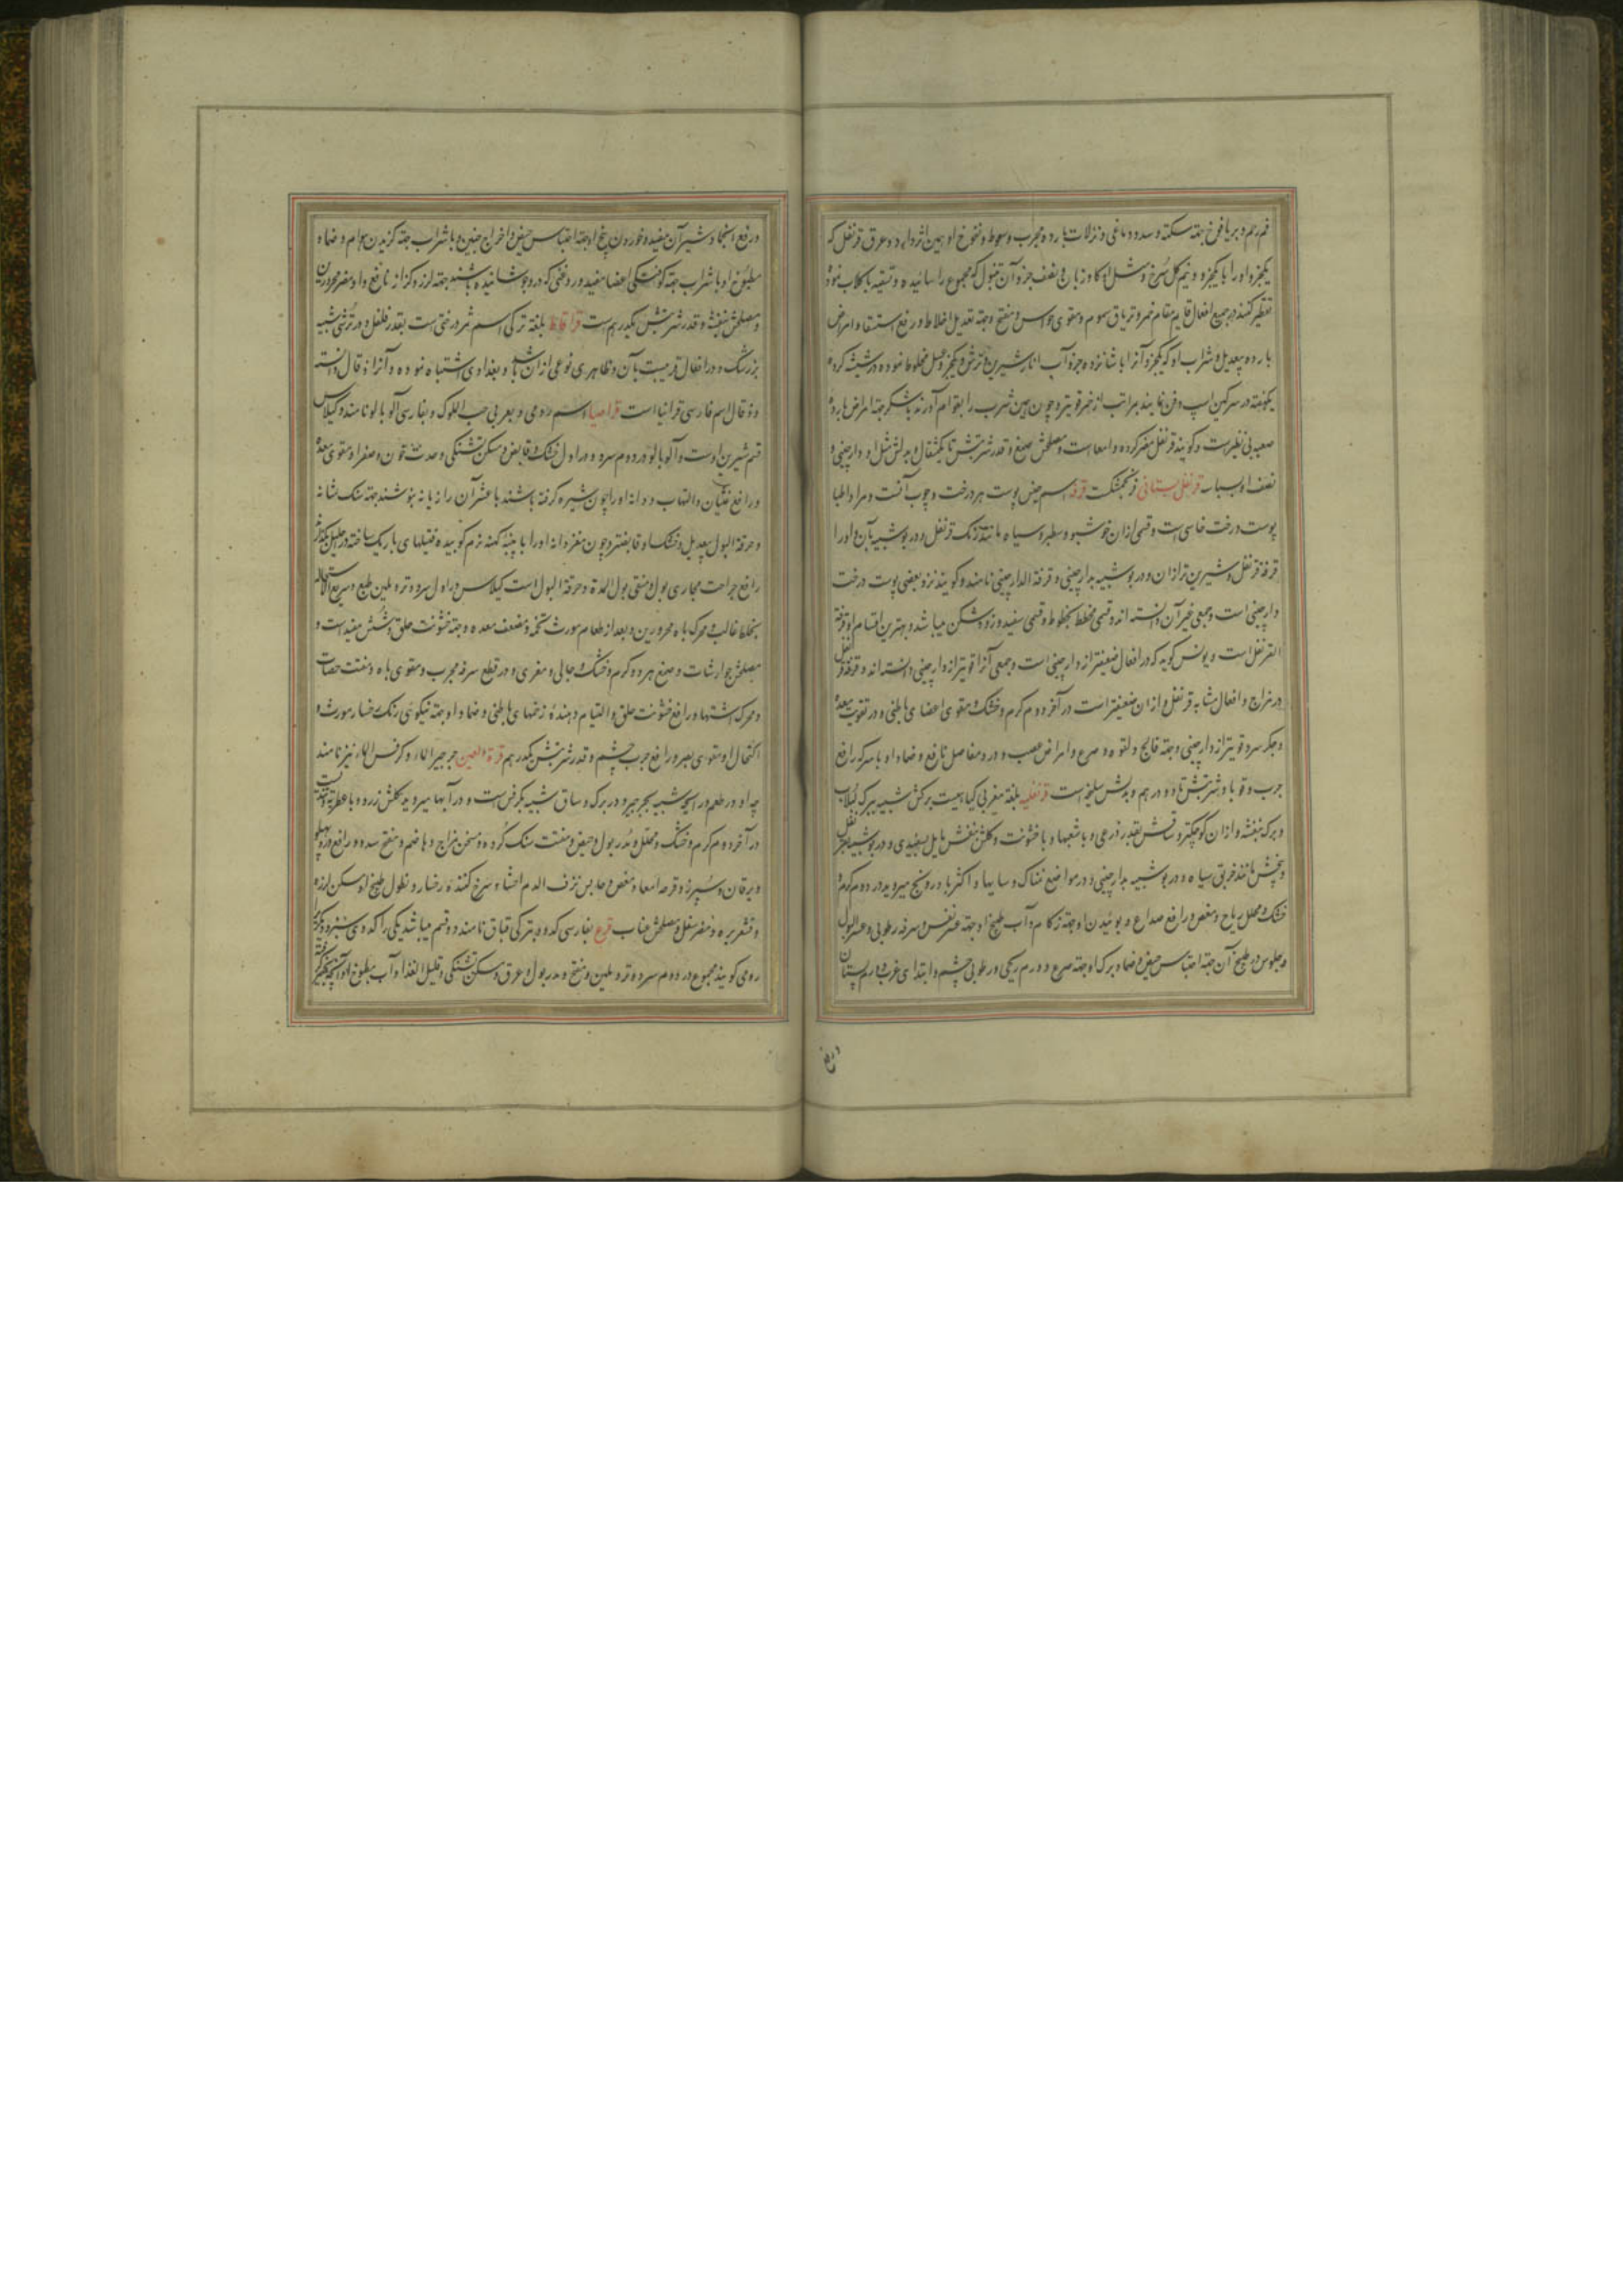 فم رحم و بر یافوخ جهته سکته و سدد دماغی و نزلات بارده مجرب و سعوط و نفوخ او همین اثر دارد و عرق قرنفل که
یکجزو او را با یکجزو و نیم کل سرخ و مثل او کاو زبان و نصف جزو آن تنبول که مجموع را سائیده و تسقیه با کلاب نموده
تقطیر کنند در جمیع افعال قایم مقام خمر و تریاق سموم و مقوی حواس و مفتح و جهته تعدیل اخلاط و رفع استسقا و امراض
بارده بیعدیل و شراب او که یکجزو آنرا با شانزده جزو آب انار شیرین و ترش و یکجزو عسل مخلوط نموده در شیشه کرده
یکهفته در سرکین اسپ دفن نمایند بمراتب از خمر قویتر و چون همین شرب را بقوام آورند با شکر جهته امراض بارده
صعبه بی نظیر است و کویند قرنفل مضر کرده و امعا است و مصلحش صمغ و قدر شربتش تا یکمثقال و بدلش مثل او دارچینی و
نصف او بسباسه قرنفل بستانی فرنجمشکست قرفه اسم جنس پوست هر درخت و چوب آنست و مراد اطبا
پوست درخت خاصی است و قسمی ازان خوشبو و سطبر و سیاه مانند رنک قرنفل و در بو شبیه بآن و او را
قرفه قرنفل و شیرین تر ازان و در بو شبیه بدارچینی و قرفة الدارچینی نامند و کویند نزد بعضی پوست درخت
دارچینی است و جمعی غیر آن دانسته اند و قسمی مخطط بخطوط و قسمی سفید و زود شکن میباشد و بهترین اقسام او قرفة
القرنفل است و یونس کوید که در افعال ضعیفتر از دارچینی است و جمعی آنرا قویتر از دارچینی دانسته اند و قرفة قرنفل
در مزاج و افعال مشابه قرنفل و ازان ضعیفتر است در آخر دوم کرم و خشک و مقوی اعضای باطنی و در تقویت معده
و جکر سرد قویتر از دارچینی و جهته فالج و لقوه و صرع و امراض عصب و درد مفاصل نافع و ضماد او با سرکه رافع
جرب و قوبا و شربتش تا دو درهم و بدلش سلیخه است قرنفلیه بلغة مغربی کیاهیست برکش شبیه ببرک لبلاب
و برک بنفشه و ازان کوچکتر و ساقش بقدر ذرعی و با شعبها و با خشونت و کلش بنفش مایل بسفیدی و در بو شبیه بقرنفل
و بیخش مانند خربق سیاه و در بو شبیه بدارچینی و در مواضع نمناک و سایها و اکثر با درونج میروید در دوم کرم و
خشک و محلل ریاح و مغص و رافع صداع و بوئیدن او جهته زکام و آب طبیخ او جهته عسر نفس و سرفه رطوبی و عسر البول
و جلوس در طبیخ آن جهته احتباس حیض و ضماد برک او جهته صرع و ورم ریحی و رطوبی چشم و ابتدای غرب و با ریم پستان
و رفع
در رفع انجماد شیر آن مفید و خوردن بیخ او جهته احتباس حیض و اخراج جنین و با شراب جهته کزیدن هوام و ضماد
مطبوخ او با شراب جهته کوفتکی اعضا مفید و روغنی که درو جوشانیده باشند جهته لرز و کزاز نافع و او مضر محرورین
و مصلحش بنفشه و قدر شربتش یکدرهم است قراقاط بلغة ترکی اسم ثمر درختی است بقدر فلفل و در ترشی شبیه
بزرشک و در افعال قریبست بآن و ظاهرا نوعی ازان باشد و بغدادی اشتباه نموده و آنرا ذقال دانسته
و ذقال اسم فارسی قرانیا است قراصیا اسم رومی و بعربی حب الملوک و بفارسی آلو بالو نامند و کیلاس
قسم شیرین اوست و آلوبالو در دوم سرد و در اول خشک و قابض و مسکن تشنکی و حدت خون و صفرا و مقوی معده
و رافع غثیان و التهاب و دانه او را چون شیره کرفته باشند با عشر آن رازیانه بنوشند جهته سنک مثانه
و حرقة البول بیعدیل و خشک او قابضتر و چون مغز دانه او را با پنبه کهنه نرم کوبیده فتیلهای باریک ساخته در احلیل بکذارند
رافع جراحت مجاری بول و منقی بول المدة و حرقة البول است کیلاس در اول سرد و تر و ملین طبع و سریع الاستحاله
بخلط غالب و محرک باه محرورین و بعد از طعام مورث تخمه و مضعف معده و جهته خشونت حلق و شش مفید است و
مصلحش جوارشات و صمغ هر دو کرم و خشک و جالی و مغری و در قطع سرفه مجرب و مقوی باه و مفتت حصات
و محرک اشتها و رافع خشونت حلق و التیام دهنده زخمهای باطنی و ضماد او جهته نیکوئی رنک رخسار مورث و
اکتحال او مقوی بصر و رافع جرب چشم و قدر شربتش یکدرهم قرة العین جرجیر الماء و کرفس الماء نیز نامند
چه او در طعم و رایحه شبیه بجرجیر و در برک و ساق شبیه بکرفس است و در آبها میروید کلش زرد و با عطریة و حدت
در آخر دوم کرم و خشک و محلل و مدر بول و حیض و مفتت سنک کرده و مسخن مزاج و هاضم و مفتح سده و رافع درد پهلو
و یرقان و سپرز و قرحه امعا و مغص و حابس نزف الدم احشاء و سرخ کننده رخسار و نطول طبیخ او مسکن لرزه
و قشعریره و مضر سفل و مصلحش عناب قرع بفارسی کدو و بترکی قباق نامند و دو قسم میباشد یکی را کدوی سبز و دیکری را
رومی کویند مجموع در دوم سرد و تر و ملین و مفتح و مدر بول و عرق و مسکن تشنکی و قلیل الغذا و آب مطبوخ او